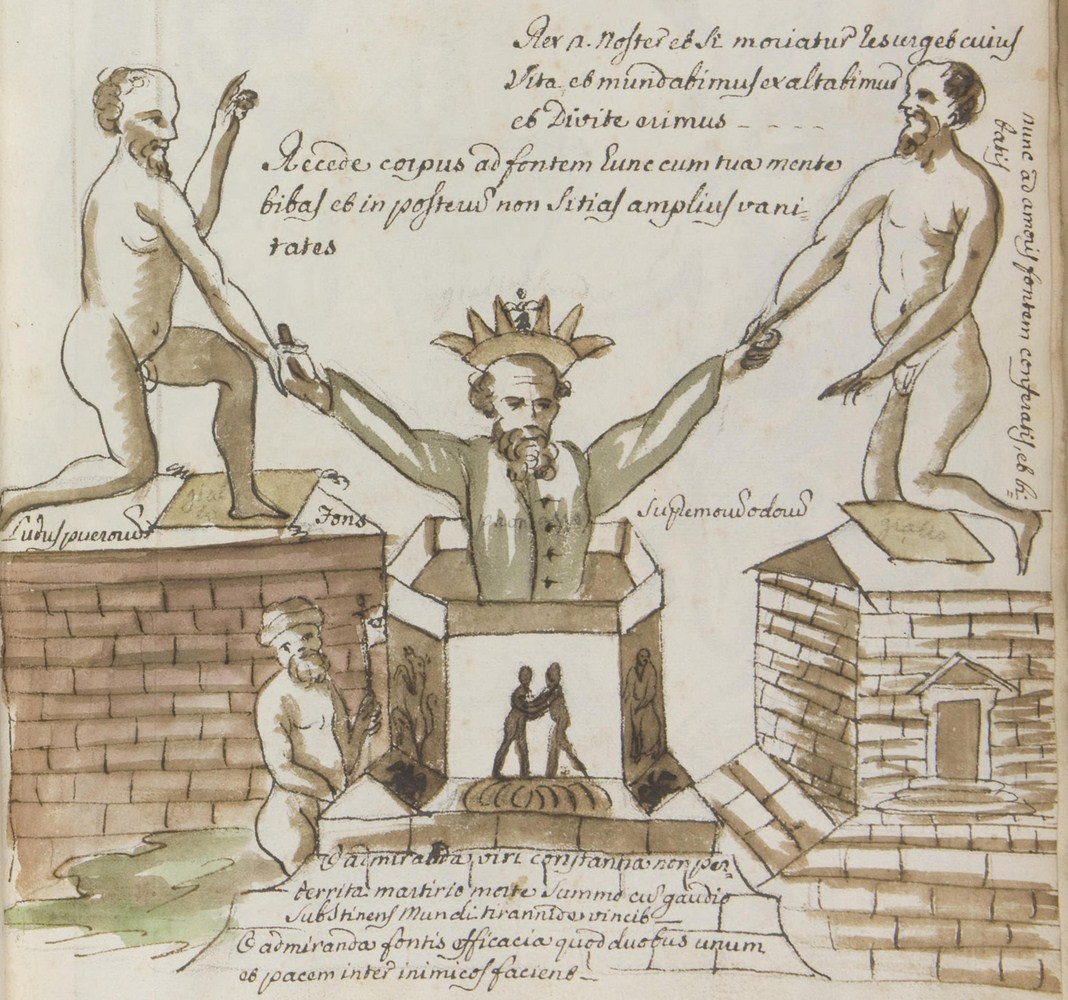 Rex n. Noster et Si moriatur Resurget cuius
Vita et mundabimus exaltabimur
et Divite erimus - - - -
Accede corpus ad fontem hunc cum tua mente
bibas et in posterū non Sitias amplius vani=
tates
nunc ad amoris fontem conferatis et bi=
batis
Ludus puerorū
Fons
Supremoū odoū
O admiranda viri constantia non per=
territa martirio morte Summo cū gaudio
Substinens Mundi tirannide vincit
O admiranda fontis efficacia quod duobus unum
et pacem inter inimicos faciens -